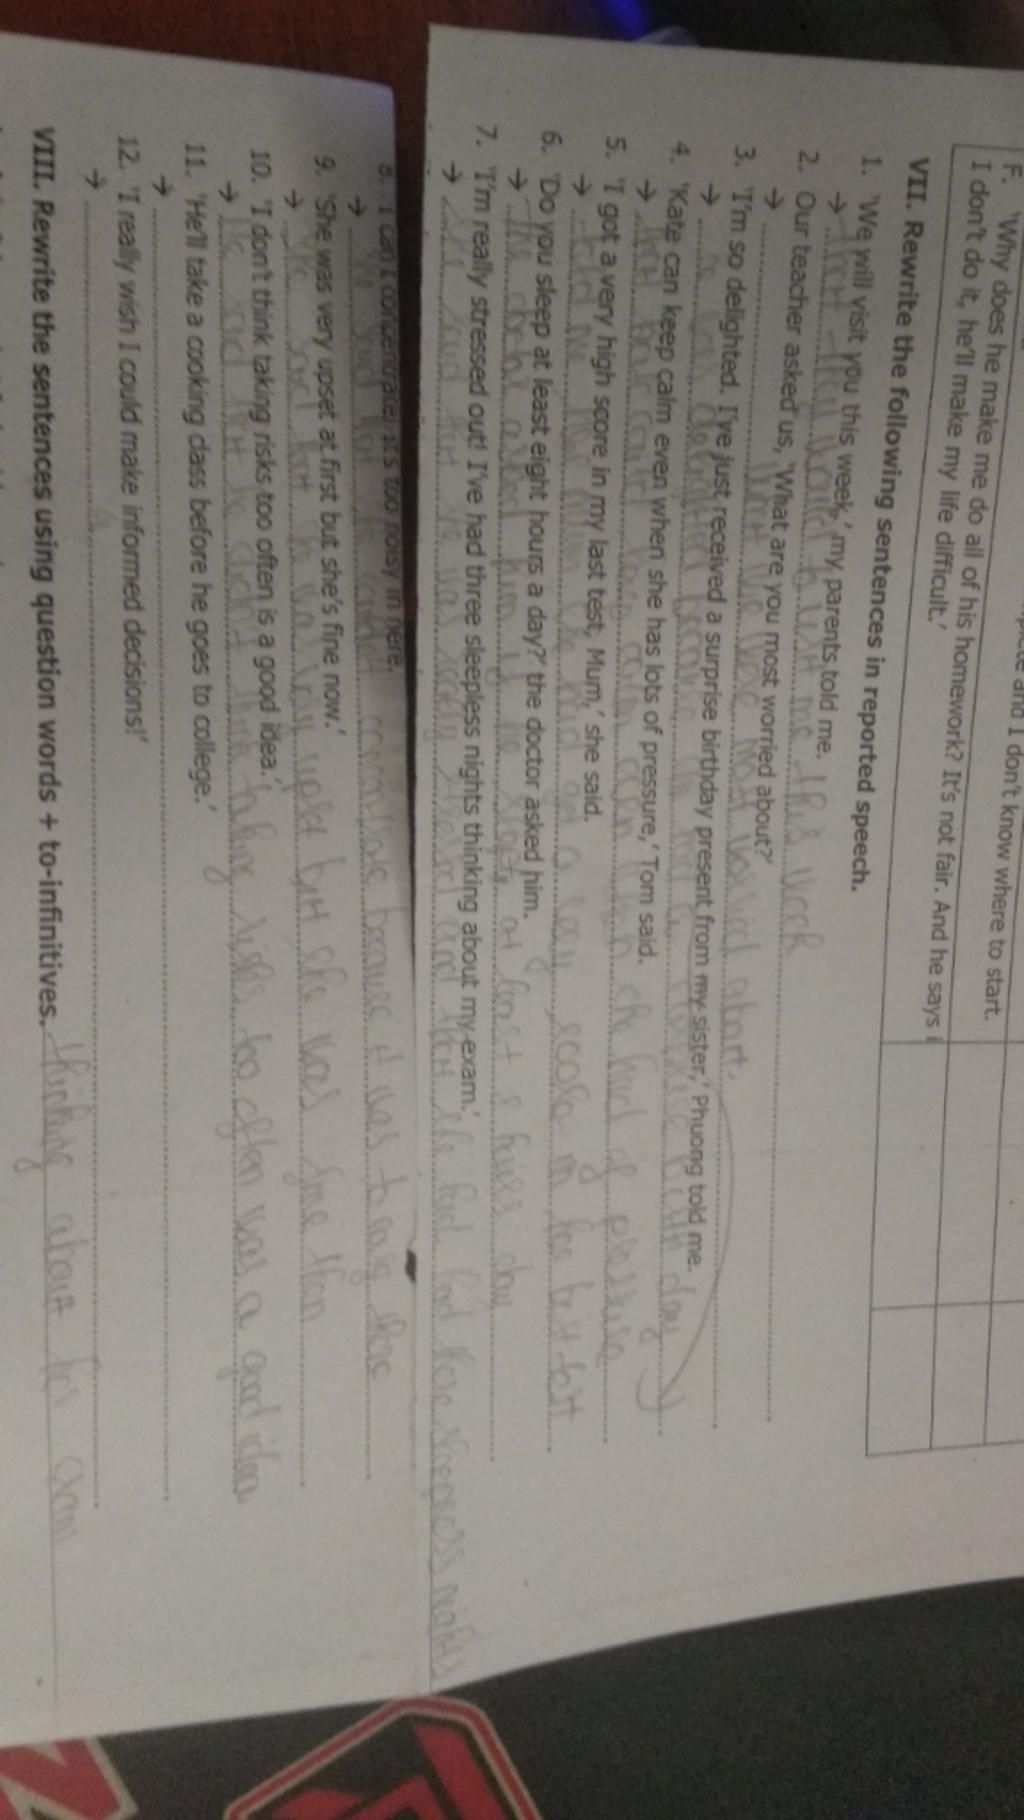 F. 'Why does he make me do all of his homework? It's not fair. And he says i
I don't do it, he'll make my life difficult.'
and I don't know where to start.
VII. Rewrite the following sentences in reported speech.
1. 'We will visit you this week,' my parents told me.
→ that they would visit me this week
2. Our teacher asked us, 'What are you most worried about?'
→ what we were most worried about.
3. 'I'm so delighted. I've just received a surprise birthday present from my sister,' Phuong told me.
→ he was delighted because he had a day
4. 'Kate can keep calm even when she has lots of pressure,' Tom said.
→ that Kate could keep calm even when she had of pressure
5. 'I got a very high score in my last test, Mum,' she said.
→ told her mum she had got a very score in her test
6. 'Do you sleep at least eight hours a day?' the doctor asked him.
→ The doctor asked him if he at least 8 hours day
7. 'I'm really stressed out! I've had three sleepless nights thinking about my exam.'
→ She said that he was really stressed and that she had had three sleepless nights
8. 'I can't concentrate! It's too noisy in here.
→ He said that he couldn't because it was to noisy there
9. 'She was very upset at first but she's fine now.'
→ He said that she was very upset but she was fine then
10. 'I don't think taking risks too often is a good idea.'
→ He said that he didn't think taking risks too often was a good idea
11. 'He'll take a cooking class before he goes to college.'
→
12. 'I really wish I could make informed decisions!'
→
VIII. Rewrite the sentences using question words + to-infinitives. thinking about her exam